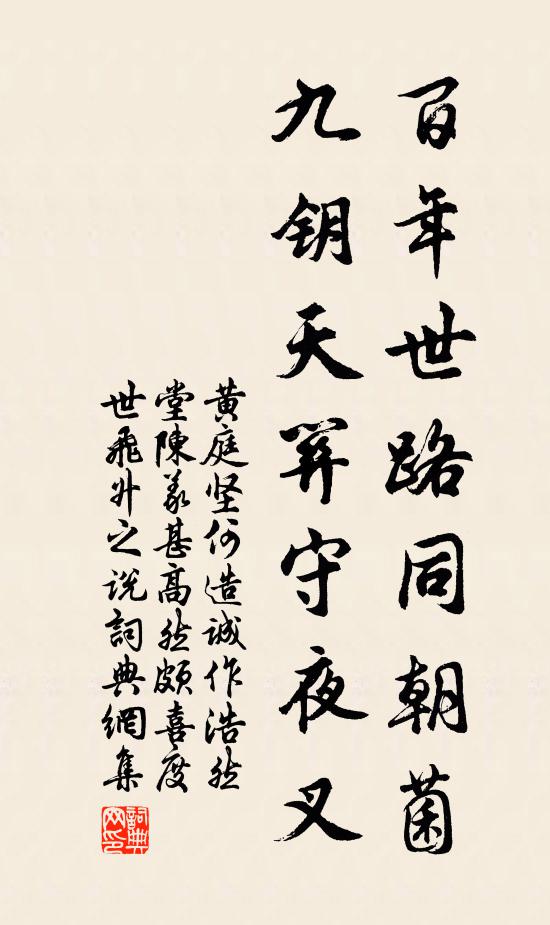 百年世路同朝菌
九钥天關守夜叉
黄庭坚何造诚作浩然
堂陳義甚高然頗喜度
世飛升之说詞典網集
詞典網印